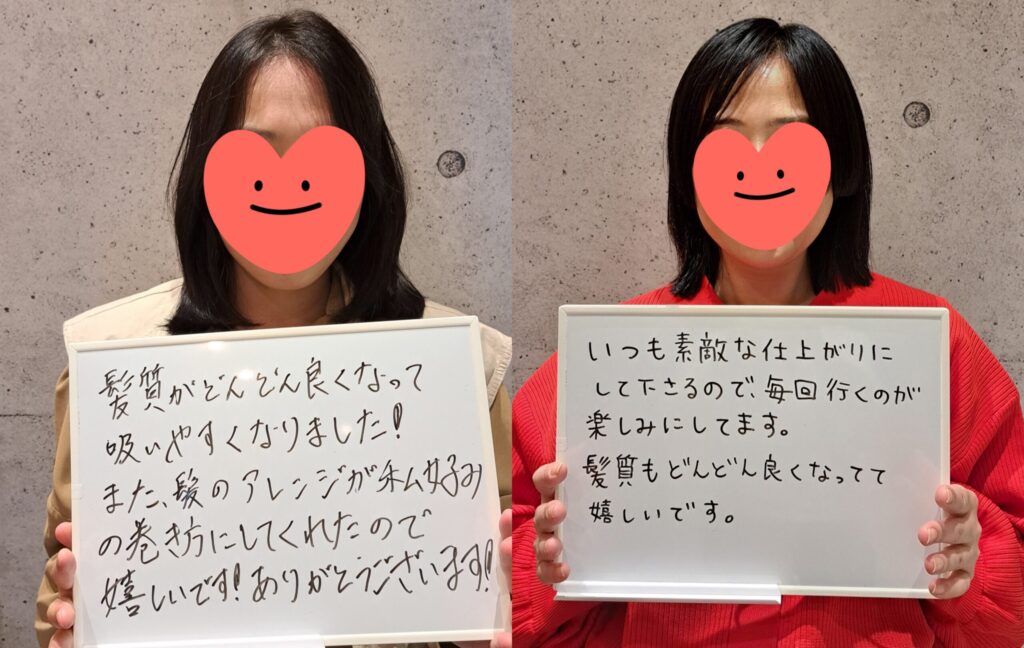 髪質がどんどん良くなって
吸いやすくなりました!
また、髪のアレンジが私好み
の巻き方にしてくれたので
嬉しいです!ありがとうございます!
いつも素敵な仕上がりに
して下さるので、毎回行くのが
楽しみにしてます。
髪質もどんどん良くなってて
嬉しいです。